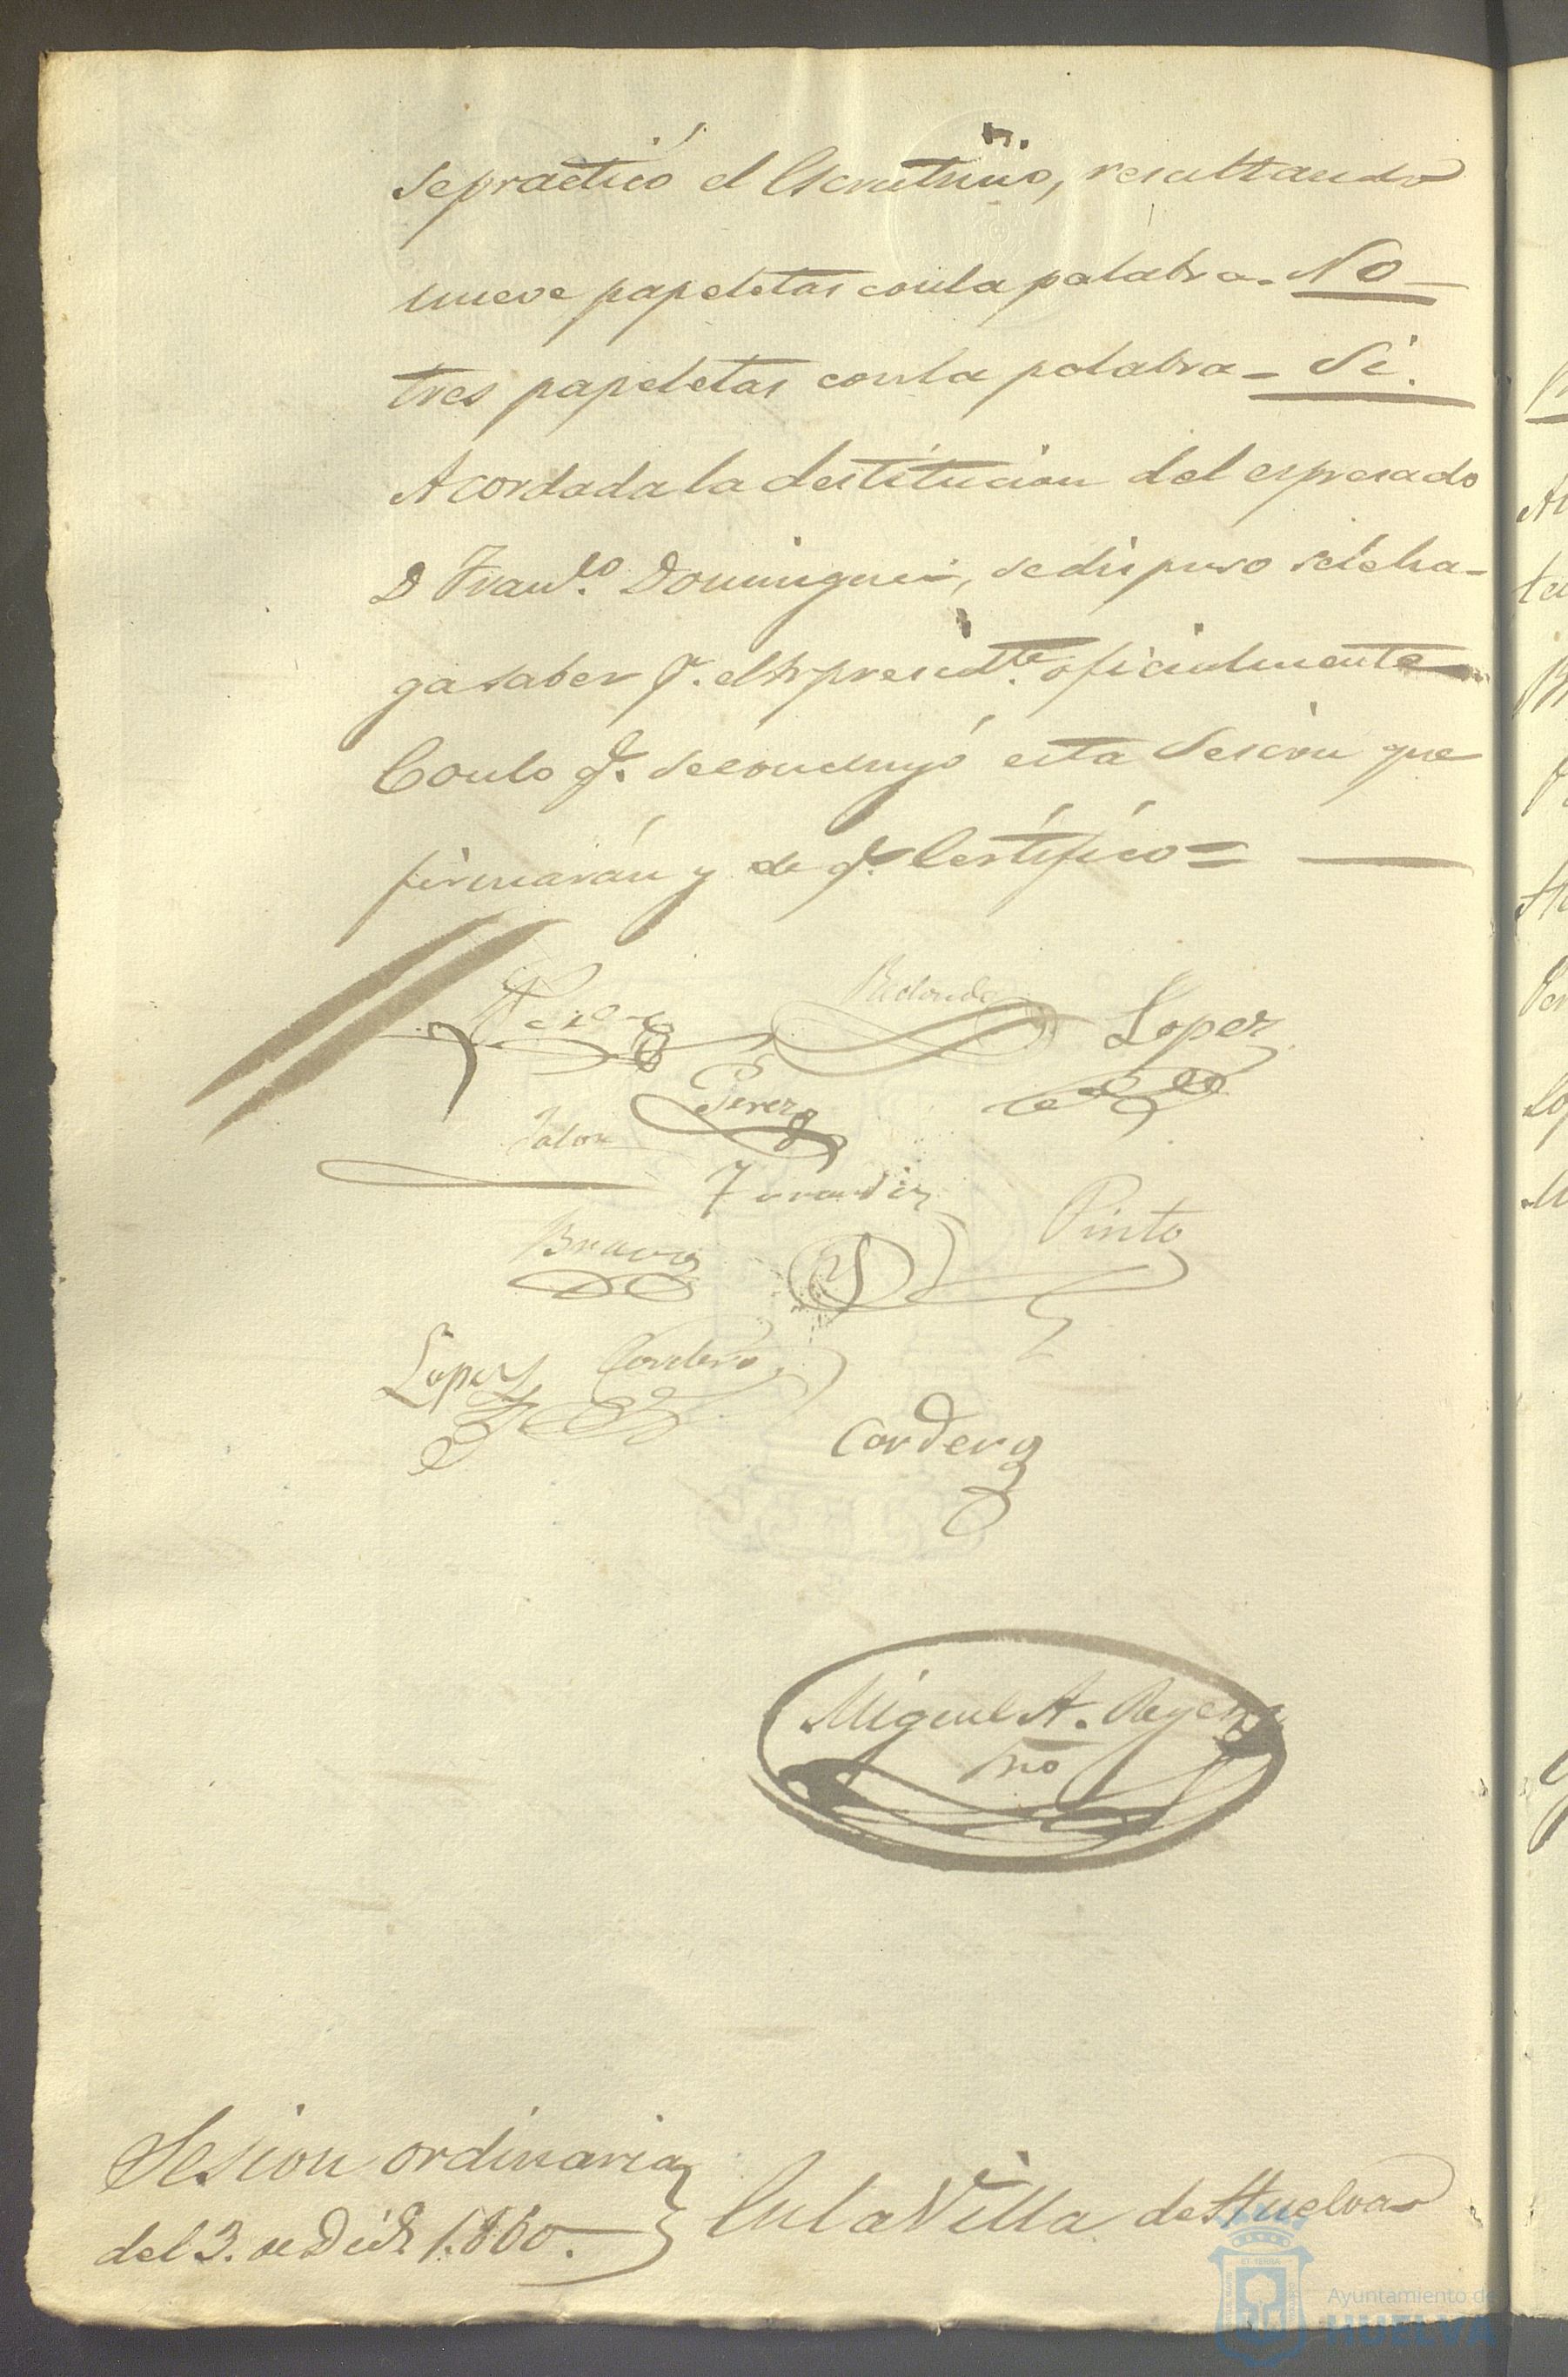 se practicó el Escrutinio, resultando
nueve papeletas con la palabra - No -
tres papeletas con la palabra - Si.
Acordada la destitucion del espresado
D Fran.co Dominguez, se dispuso se le ha-
ga saber p.r el Sr presid.te oficialmente
Con lo q.e se concluyó esta Sesion que
firmarán y de q.e Certifico =
Redondo
Lopez
Perez
Jalon
Bravo
Pinto
Lopez
Cordero
Cordero
Miguel A.
Srio
Sesion ordinaria
del 3. de Dice. 1.860.
En la Villa de Huelva
Ayuntamiento de
HUELVA